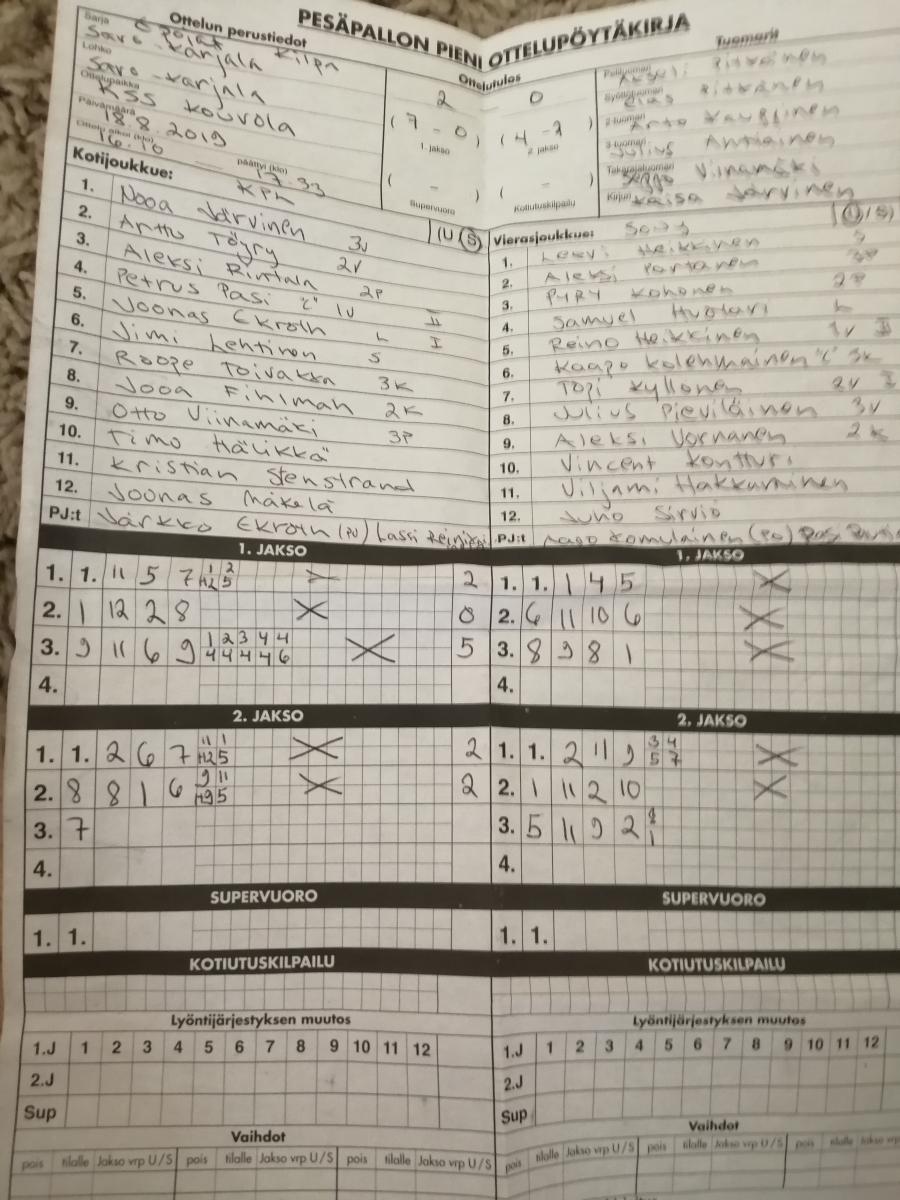 PESÄPALLON PIENI OTTELUPÖYTÄKIRJA
Ottelun perustiedot
Sarja
Savo-Karjala Kilpa
Lohko
Savo-Karjala
Ottelupaikka
KSS Kouvola
Päivämäärä
18.8.2019
16.10
päättyi (klo)
17.33
Ottelutulos
2 0
(7 - 0) (4 - 3)
1. jakso 2. jakso
( - ) ( - )
Supervuoro Kotiutuskilpailu
Tuomarit
Pitkänen
Elias Pitkänen
Arto Kauppinen
Julius Antiainen
Seppo Viinamäki
Kaisa Järvinen
Kotijoukkue: KPL (U/S)
1. Nooa Järvinen 3v
2. Artto Töyry 2v
3. Aleksi Rintala 2p
4. Petrus Pasi "C" 1v II
5. Joonas Ekroth L I
6. Jimi Lehtinen S
7. Roope Toivakka 3K
8. Jooa Fihlman 2K
9. Otto Viinamäki 3P
10. Timo Hälikkä
11. Kristian Stenstrand
12. Joonas Mäkelä
PJ:t Järkko Ekroth (PJ) Lassi
Vierasjoukkue: (U/S)
1. Leevi Heikkinen S
2. Aleksi Partanen
3. Pyry Kohonen 2P
4. Samuel Huotari L
5. Reino Heikkinen 1v II
6. Kaapo Kolehmainen "C" 3K
7. Topi Kyllönen 2v I
8. Julius Pieviläinen 3v
9. Aleksi Vornanen 2K
10. Vincent Kontturi
11. Viljami Hakkarainen
12. Juho Sirviö
PJ:t Aapo Komulainen
1. JAKSO
1. 1. 11 5 7 1 2 2
H2 5
2. 1 12 2 8 0
3. 9 11 6 9 1 2 3 4 4 5
4 4 4 4 6
4.
1. JAKSO
1. 1. 1 4 5
2. 6 11 10 6
3. 8 9 8 1
4.
2. JAKSO
1. 1. 2 6 7 11 1 2
H2 5
2. 8 8 1 6 9 11 2
H9 5
3. 7
4.
2. JAKSO
1. 1. 2 11 9 3 4
5 7
2. 1 11 2 10
3. 5 11 9 2
1
4.
SUPERVUORO
1. 1.
SUPERVUORO
1. 1.
KOTIUTUSKILPAILU
KOTIUTUSKILPAILU
Lyöntijärjestyksen muutos
1.J 1 2 3 4 5 6 7 8 9 10 11 12
2.J
Sup
Lyöntijärjestyksen muutos
1.J 1 2 3 4 5 6 7 8 9 10 11 12
2.J
Sup
Vaihdot
pois tilalle Jakso vrp U/S pois tilalle Jakso vrp U/S pois tilalle Jakso vrp U/S
Vaihdot
pois tilalle Jakso vrp U/S pois tilalle Jakso vrp U/S pois tilalle Jakso vrp